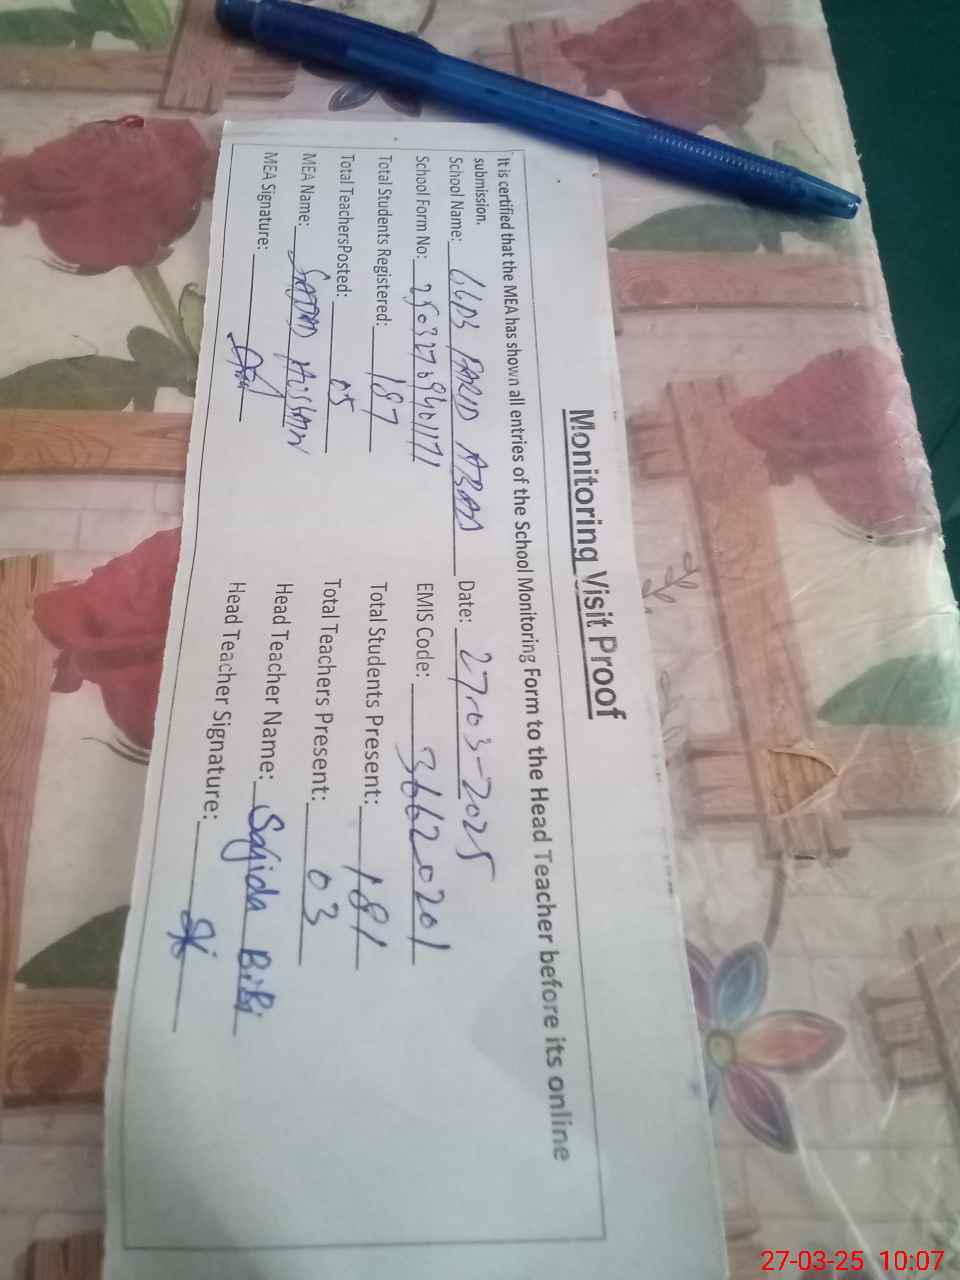 Monitoring Visit Proof
It is certified that the MEA has shown all entries of the School Monitoring Form to the Head Teacher before its online
submission.
School Name: GGPS FARID ABAD Date: 27-03-2025
School Form No: EMIS Code: 36620201
Total Students Registered: 187 Total Students Present: 181
Total TeachersPosted: 05 Total Teachers Present: 03
MEA Name: SAJJAD HUSSAIN Head Teacher Name: Sajida BiBi
MEA Signature: Head Teacher Signature:
27-03-25 10:07